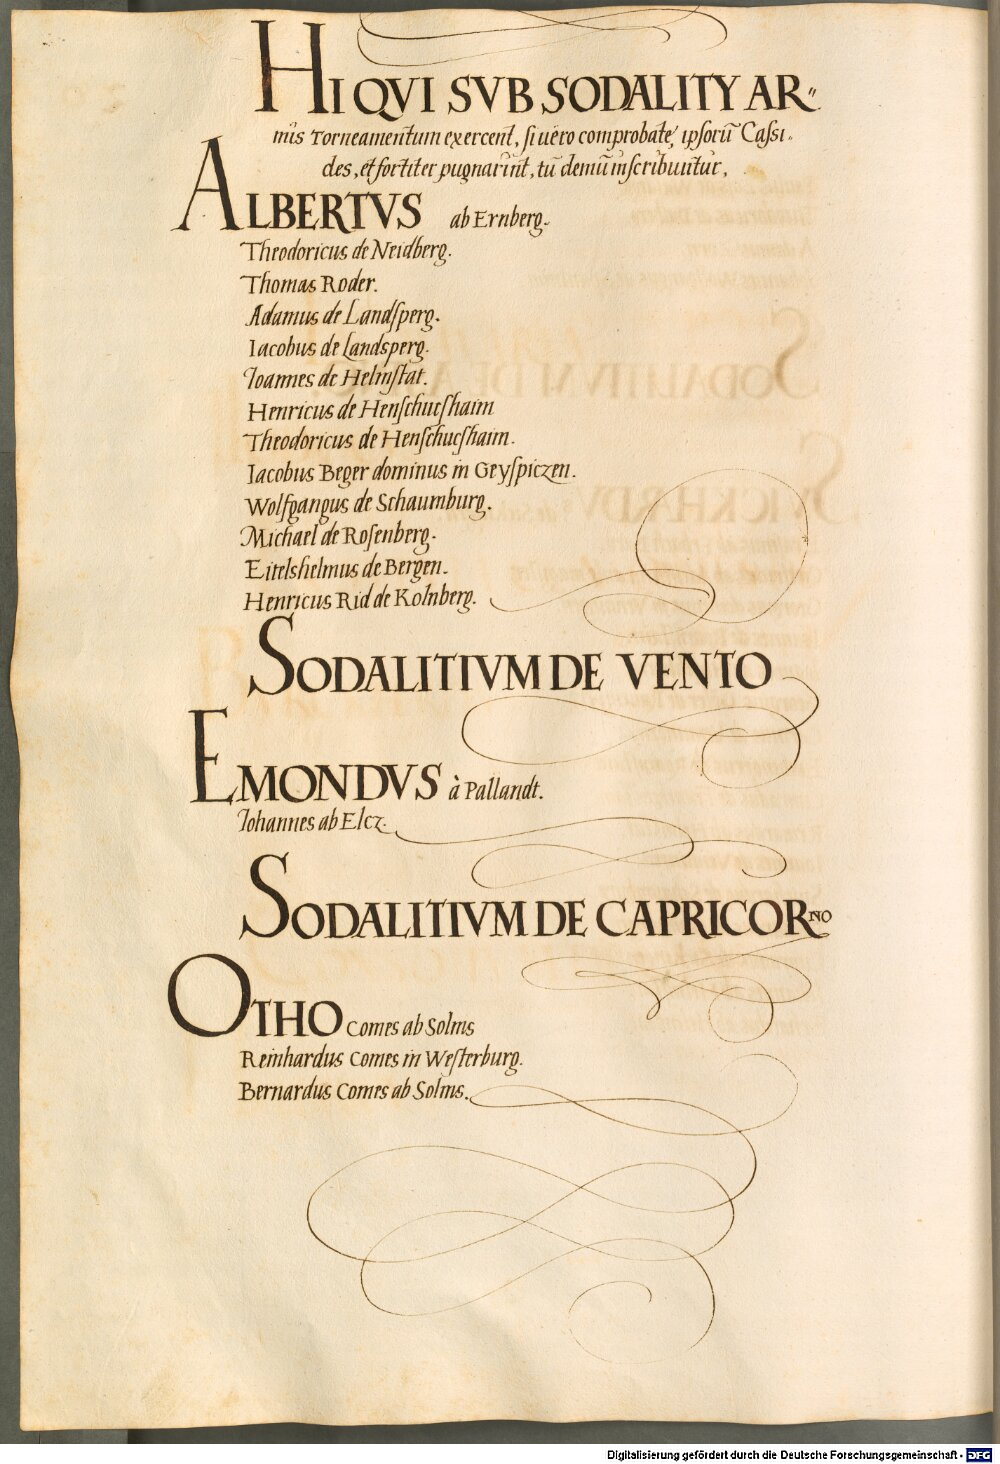 HI QVI SVB SODALITY AR„
mis Torneamentum exercent, si uero comprobatę ipsorū Cassi„
des, et fortiter pugnarint, tū demū inscribuntur,
ALBERTVS ab Ernberg.
Theodoricus de Neidberg.
Thomas Roder.
Adamus de Landsperg.
Iacobus de Landsperg.
Joannes de Helmstat.
Henricus de Henschucshaim
Theodoricus de Henschucshaim.
Iacobus Beger dominus in Geyspiczen.
Wolfgangus de Schaumburg.
Michael de Rosenberg.
Eitelshelmus de Bergen.
Henricus Rid de Kolnberg.
SODALITIVM DE VENTO
EMONDVS à Pallandt.
Johannes ab Elcz.
SODALITIVM DE CAPRICORNO
OTHO Comes ab Solms
Reinhardus Comes in Westerburg.
Bernardus Comes ab Solms.
Digitalisierung gefördert durch die Deutsche Forschungsgemeinschaft - DFG